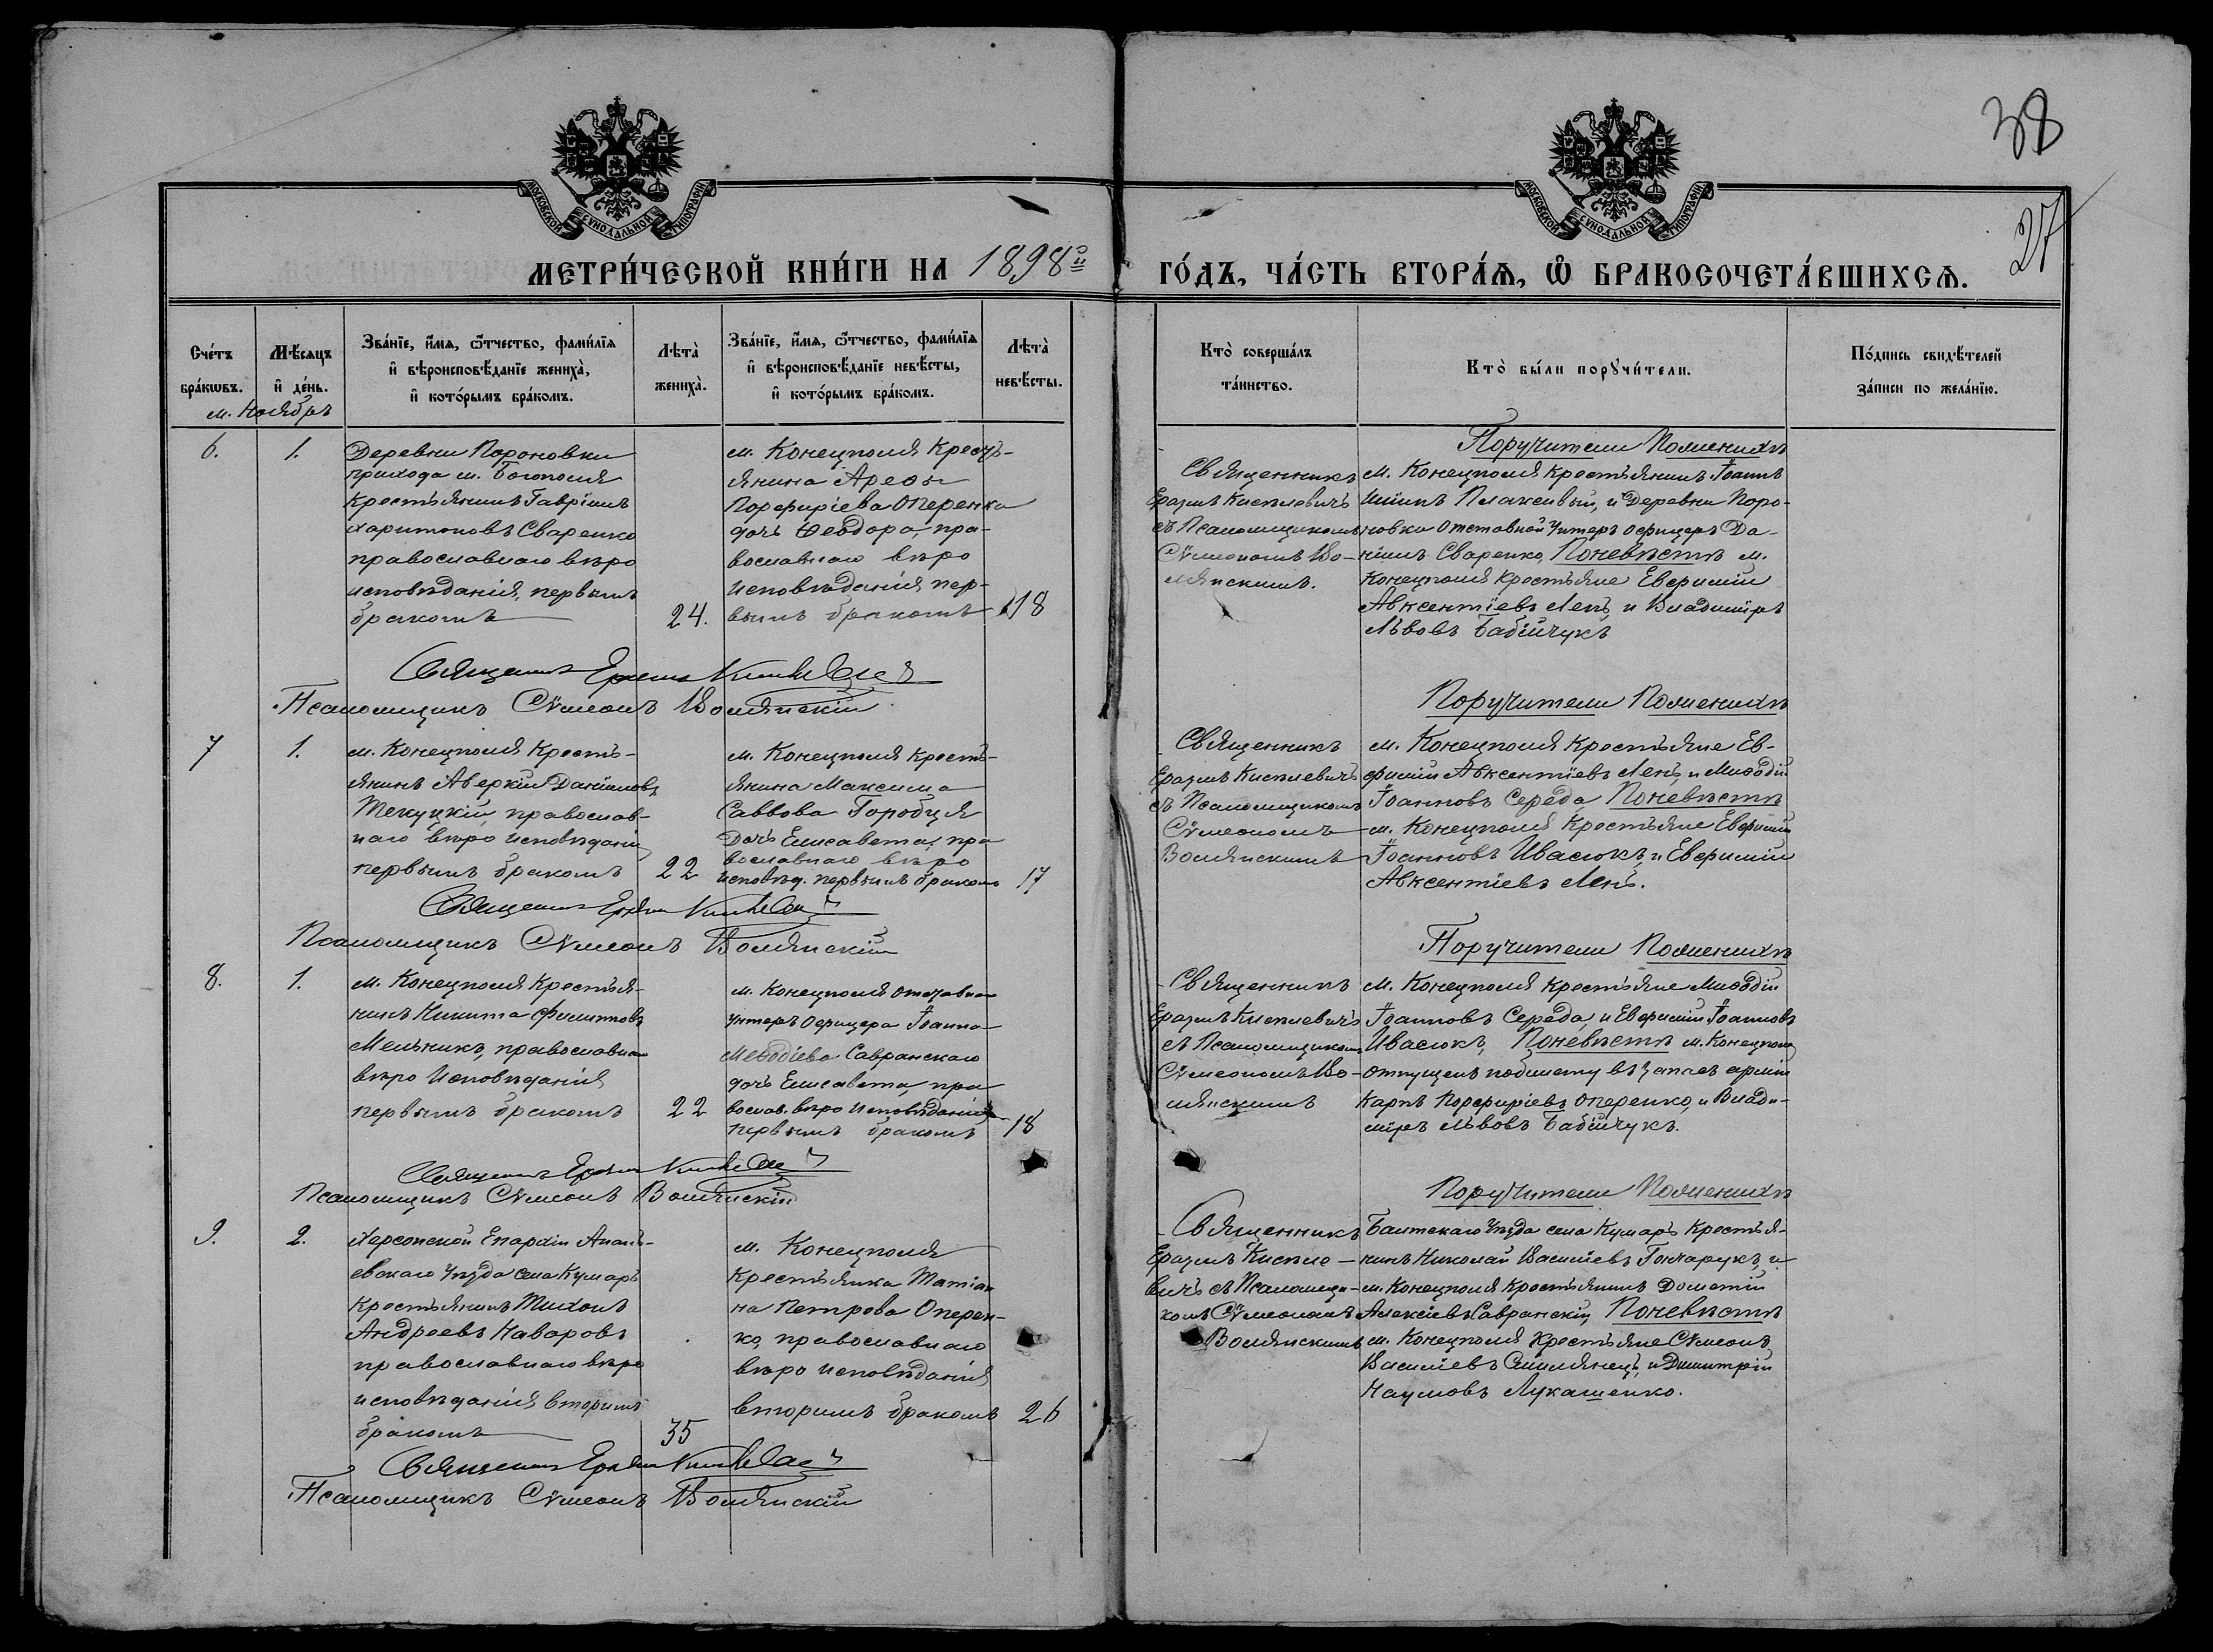 38
27
МОСКОВСКОЙ СУНОДАЛЬНОЙ ТИПОГРАФІИ
МОСКОВСКОЙ СУНОДАЛЬНОЙ ТИПОГРАФІИ
МЕТРИ́ЧЕСКОЙ КНИ́ГИ НА 1898й ГО́ДЪ, ЧА́СТЬ ВТОРА́Ѧ, Ѽ БРАКОСОЧЕТА́ВШИХСѦ.
Сче́тъ
бра́кωвъ.
Мѣ́сяцъ
и҆ де́нь.
Зва́нїе, и҆́мя, ѻ҆́тчество, фами́лїя
и҆ вѣроисповѣ́данїе жениха̀,
и҆ кото́рымъ бра́комъ.
Лѣта̀
жениха̀.
Зва́нїе, и҆́мя, ѻ҆́тчество, фами́лїя
и҆ вѣроисповѣ́данїе невѣ́сты,
и҆ кото́рымъ бра́комъ.
Лѣта̀
невѣ́сты.
Кто̀ соверша́лъ
та́инство.
Кто̀ бы́ли порꙋчи́тели.
По́дпись свидѣ́телей
за́писи по жела́нїю.
м. Ноябрь
6.
1.
Деревни Пороновки
прихода м. Богополя
Крестьянинъ Гавріилъ
Харитоновъ Сваренко
православнаго вѣро
исповѣданія, первымъ
бракомъ
24.
м. Конецполя Кресть-
янина Арефы
Порфиріева Оперенка
дочь Феодора, пра-
вославнаго вѣро
исповѣданія, пер-
вымъ бракомъ
18
Священникъ
Еразмъ Киселевичъ
съ Псаломщикомъ
Сѵмеономъ Во-
лянскимъ.
Поручители По женихѣ
м. Конецполя крестьянинъ Іоаннъ
Плаксивый, и Деревни Поро-
новки Отставной Унтеръ Офицеръ Да-
ніилъ Сваренко, По невѣстѣ м.
Конецполя Крестьяне Евфимій
Авксентіевъ Ленъ, и Владиміръ
Львовъ Бабійчукъ
Священникъ Еразмъ Киселевичъ
Псаломщикъ Сѵмеонъ Волянскій
7
1.
м. Конецполя Кресть-
янинъ Аверкій Даніиловъ
Текуцкій, православ-
наго вѣро исповѣданія
первымъ бракомъ
22
м. Конецполя Кресть-
янина Максима
Саввова Горобця
Дочь Елисавета, пра
вославнаго вѣро
исповѣд. первымъ бракомъ
17
Священникъ
Еразмъ Киселевичъ
съ Псаломщикомъ
Сѵмеономъ
Волянскимъ
Поручители По женихѣ
м. Конецполя Крестьяне Ев-
фимій Авксентіевъ Ленъ, и Миѳодій
Іоанновъ Середа, По невѣстѣ
м. Конецполя Крестьяне Евфимій
Іоанновъ Ивасюкъ, и Евфимій
Авксентіевъ Ленъ.
Священникъ Еразмъ Киселевичъ
Псаломщикъ Сѵмеонъ Волянскій
8.
1.
м. Конецполя Крестья-
нинъ Никита Филипповъ
Мельникъ, православнаго
вѣро Исповѣданія
первымъ бракомъ
22
м. Конецполя отставнаго
унтеръ Офицера Іоанна
Меѳодіева Савранскаго
дочь Елисавета, пра
вослав. вѣро исповѣданія
первымъ бракомъ
18
Священникъ
Еразмъ Киселевичъ
съ Псаломщикомъ
Сѵмеономъ Во-
лянскимъ
Поручители По женихѣ
м. Конецполя Крестьяне Миѳодій
Іоанновъ Середа, и Евфимій Іоанновъ
Ивасюкъ, По невѣстѣ м. Конецполя
отпущен. по билету въ запасъ арміи
Карпъ Порфиріевъ Оперенко, и Влади-
міръ Львовъ Бабійчукъ.
Священникъ Еразмъ Киселевичъ
Псаломщикъ Сѵмеонъ Волянскій
9.
2.
Херсонской Епархіи Анань-
евскаго Уѣзда села Кумаръ
Крестьянинъ Тихонъ
Андреевъ Наваровъ
православнаго вѣро
исповѣданія вторымъ
бракомъ
35
м. Конецполя
Крестьянка Матіан
на Петрова Оперен-
ко, православнаго
вѣро исповѣданія
вторымъ бракомъ
26
Священникъ
Еразмъ Киселе-
вичъ съ Псаломщи-
комъ Сѵмеономъ
Волянскимъ
Поручители По женихѣ
Балтскаго Уѣзда села Кумаръ Крестья-
нинъ Николай Васильевъ Гончарукъ, и
м. Конецполя Крестьянинъ Дометій
Алексѣевъ Савранскій, По невѣстѣ
м. Конецполя Крестьяне Сѵмеонъ
Васильевъ Смилянецъ, и Димитрій
Наумовъ Лукашенко.
Священникъ Еразмъ Киселевичъ
Псаломщикъ Сѵмеонъ Волянскій